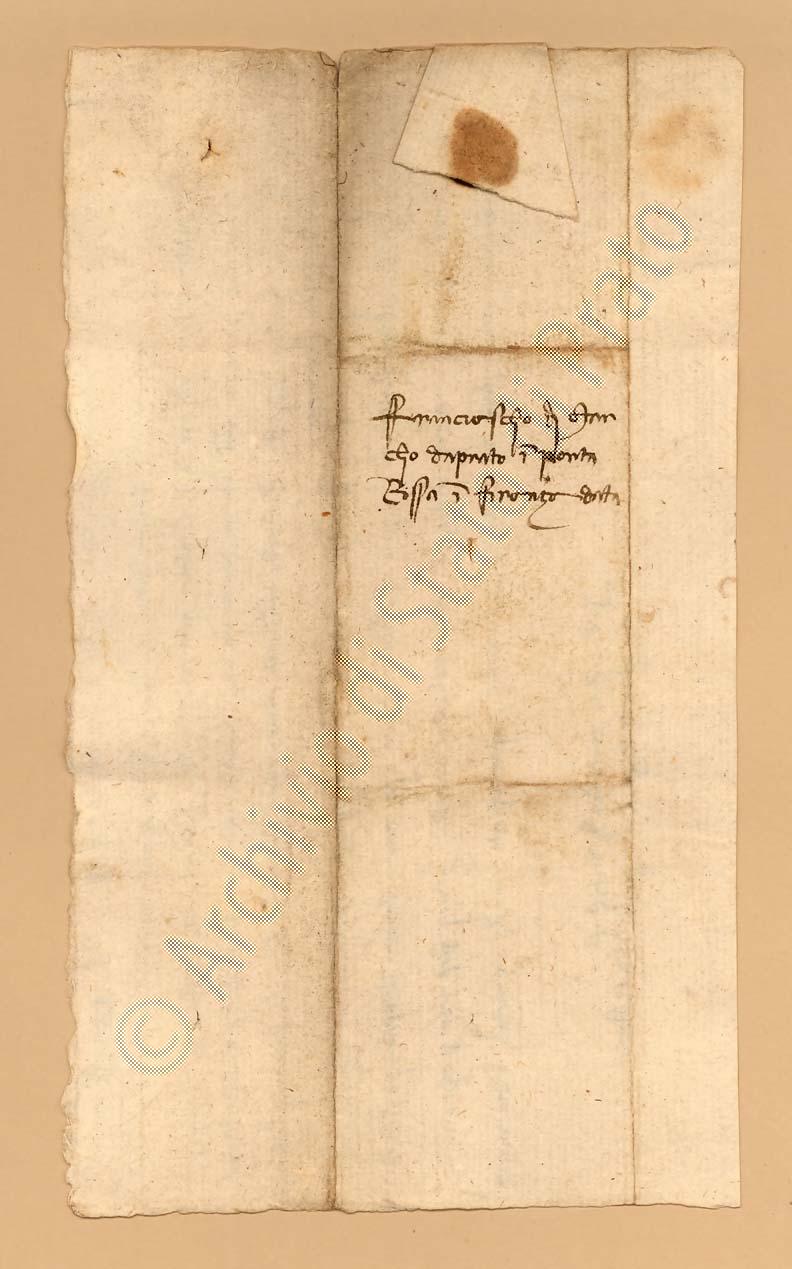 Franciescho di Mar
cho da Prato in Porta
Rossa in Firenze data
© Archivio di Stato di Prato